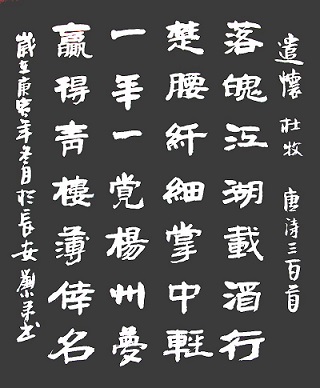 遣懷 杜牧 唐诗三百首
落魄江湖載酒行
楚腰纤細掌中軽
一年一覚楊州夢
贏得青樓薄倖名
歲在庚寅年冬月於長安 劉书